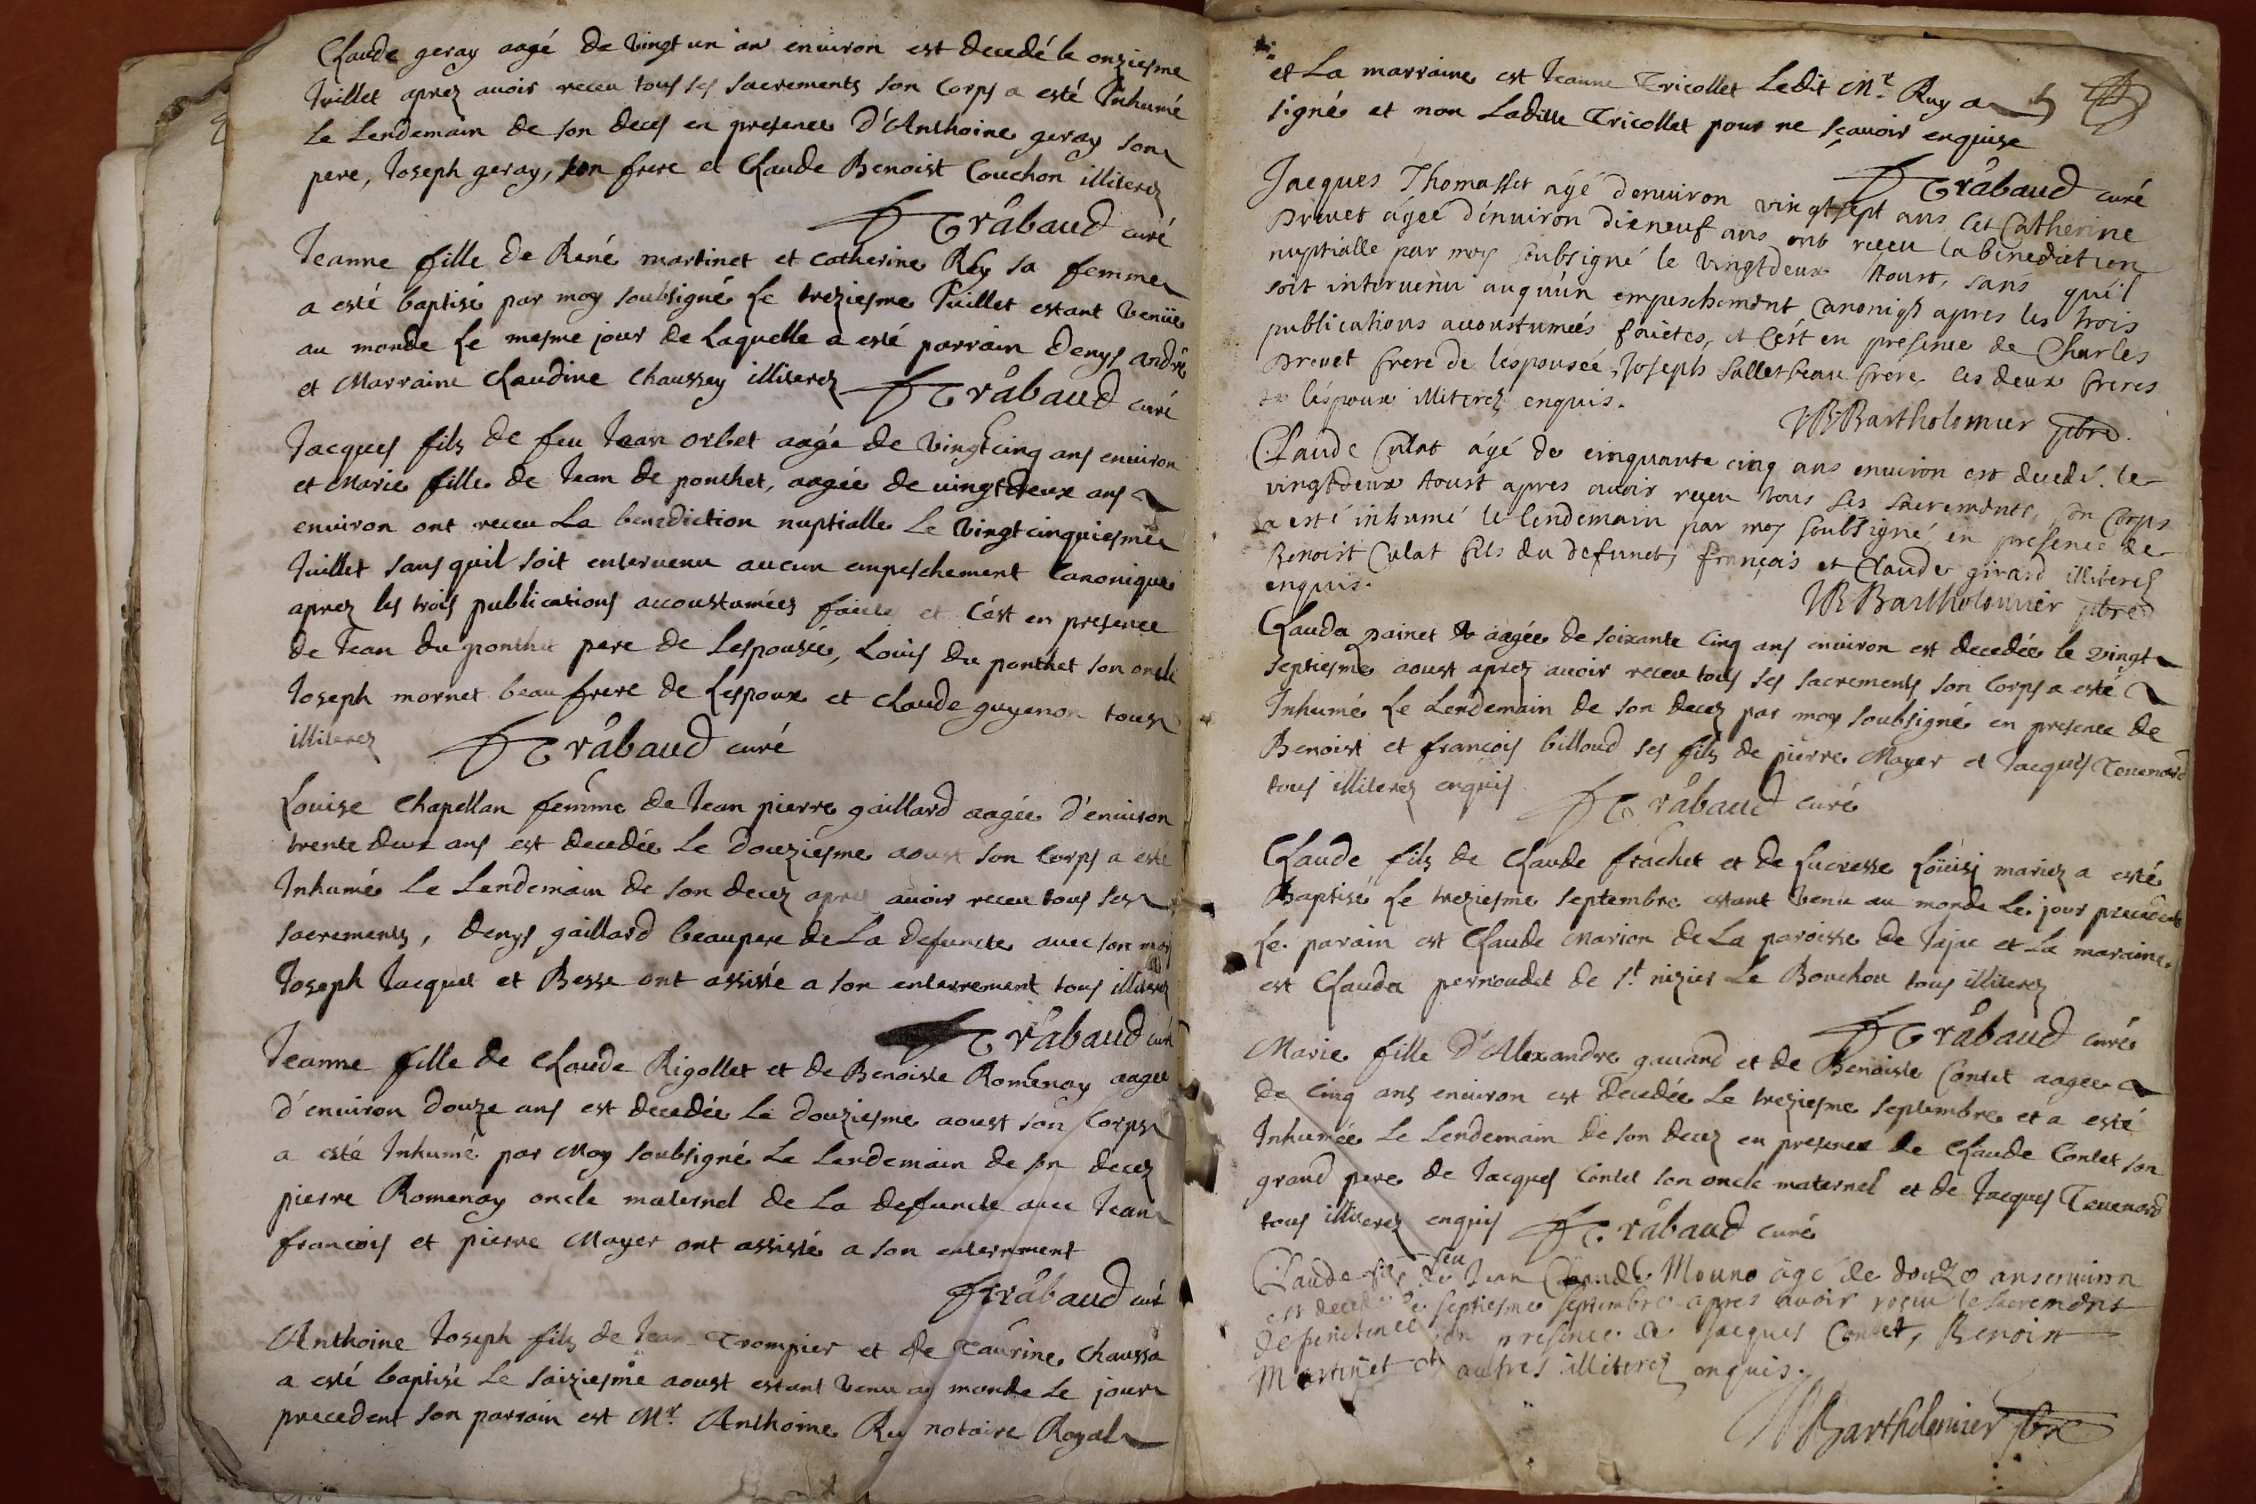 Claude geray aagé de vingt un an environ est decedé le onziesme
Juillet aprez avoir receu tous ses sacrements son Corps a esté Inhumé
Le Lendemain de son deces en presence d'Anthoine geray son
pere, Joseph geray, son frere et Claude Benoist Couchon illiterez
Trabaud curé
Jeanne fille de René martinet et catherine Rey sa femme
a esté baptisé par moy soubsigné Le treziesme Juillet estant venüe
au monde Le mesme jour de Laquelle a esté parrain Denys andré
et Marraine Claudine Chaussey illiterez Trabaud curé
Jacques fils de feu Jean orbet aagé de vingt cinq ans environ
et Marie fille de Jean de ponthet, aagée de vingtdeux ans
environ ont receu La benediction nuptialle Le vingtcinquiesme
Juillet sans quil soit entervenu aucun empeschement Canonique
aprez les trois publications accoustumées faites et C'est en presence
de Jean du ponthet pere de Lespousée, Louis du ponthet son oncle
Joseph mornet beau frere de Lespoux et Claude guyenon tous
illiterez Trabaud curé
Louise Chapellan femme de Jean pierre gaillard aagée d'environ
trente deux ans est decedée Le douziesme aoust son Corps a esté
Inhumé Le Lendemain de son decez aprez avoir receu tous ses
sacrements, Denys gaillard beaupere de La defuncte avec son
Joseph Jacquet et Besse ont assisté a son enterrement tous illiterez
Trabaud curé
Jeanne fille de Claude Rigollet et de Benoiste Romenay aagée
d'environ douze ans est decedée Le douziesme aoust son Corps
a esté Inhumé par Moy soubsigné Le Lendemain de son decez
pierre Romenay oncle maternel de La defuncte avec Jean
francois et pierre Mayer ont assisté a son enterrment
Trabaud curé
Anthoine Joseph fils de Jean Trompier et de Taurine Chaussa
a esté baptisé Le saiziesme aoust estant venu au monde Le jour
precedent son parrain est Mr. Anthoine Ruy notaire Royal
et La marraine est Jeanne Tricollet Ledit Mr. Ruy a
signé et non Laditte Tricollet pour ne sçavoir enquise
Trabaud curé
Jacques Thomasset âgé d'environ vingt sept ans et Catherine
Prevet âgée d'environ dixneuf ans ont receu la benediction
nuptialle par moy soubsigné le vingtdeux Aoust, sans qu'il
soit intervenu auqu'un empeschement Canoniq apres les trois
publications accoustumées faictes, et c'est en presence de Charles
Prevet frere de l'espousée, Joseph Sallet beau frere les deux freres
l'espoux illiterez enquis.
Bartholomier pbre.
Claude Culat âgé de cinquante cinq ans environ est decedé. le
vingtdeux Aoust apres avoir receu tous ses sacrements, son corps
a esté inhumé le lendemain par moy soubsigné, en presence de
Benoist Culat fils du defunct, françois et Claude girard illiterez
enquis.
Bartholomier pbre
Clauda painet aagée de soixante Cinq ans environ est decedée le vingt
septiesme aoust aprez avoir receu tous ses sacrements son Corps a esté
Inhumé Le Lendemain de son decez par moy soubsigné en presence de
Benoist et francois billoud ses fils de pierre Mayer et Jacques Tevenard
tous illiterez enquis
Trabaud curé
Claude fils de Claude frachet et de Lucresse Loüisj mariez a esté
Baptisé Le treziesme septembre estant venu au monde Le jour precedent
Le parain est Claude Marion de La paroisse de Jajac et La maraine
est Clauda pernoudet de st. nizier Le Bouchou tous illiterez
Trabaud curé
Marie fille d'Alexandre gavand et de Benoiste Contet aagée
de Cinq ans environ est decedée Le treziesme septembre et a esté
Inhumée Le Lendemain de son decez en presence de Claude Contet son
grand pere de Jacques Contet son oncle maternel et de Jacques Tevenard
tous illiterez enquis Trabaud curé
Claude fils de feu Jean Claude Mouno âgé de douze ans environ
est decedé le septiesme septembre apres avoir receu le sacrement
de penitence en presence de Jacques Contet, Benoist
Martinet et autres illiterez enquis.
Bartholomier pbre